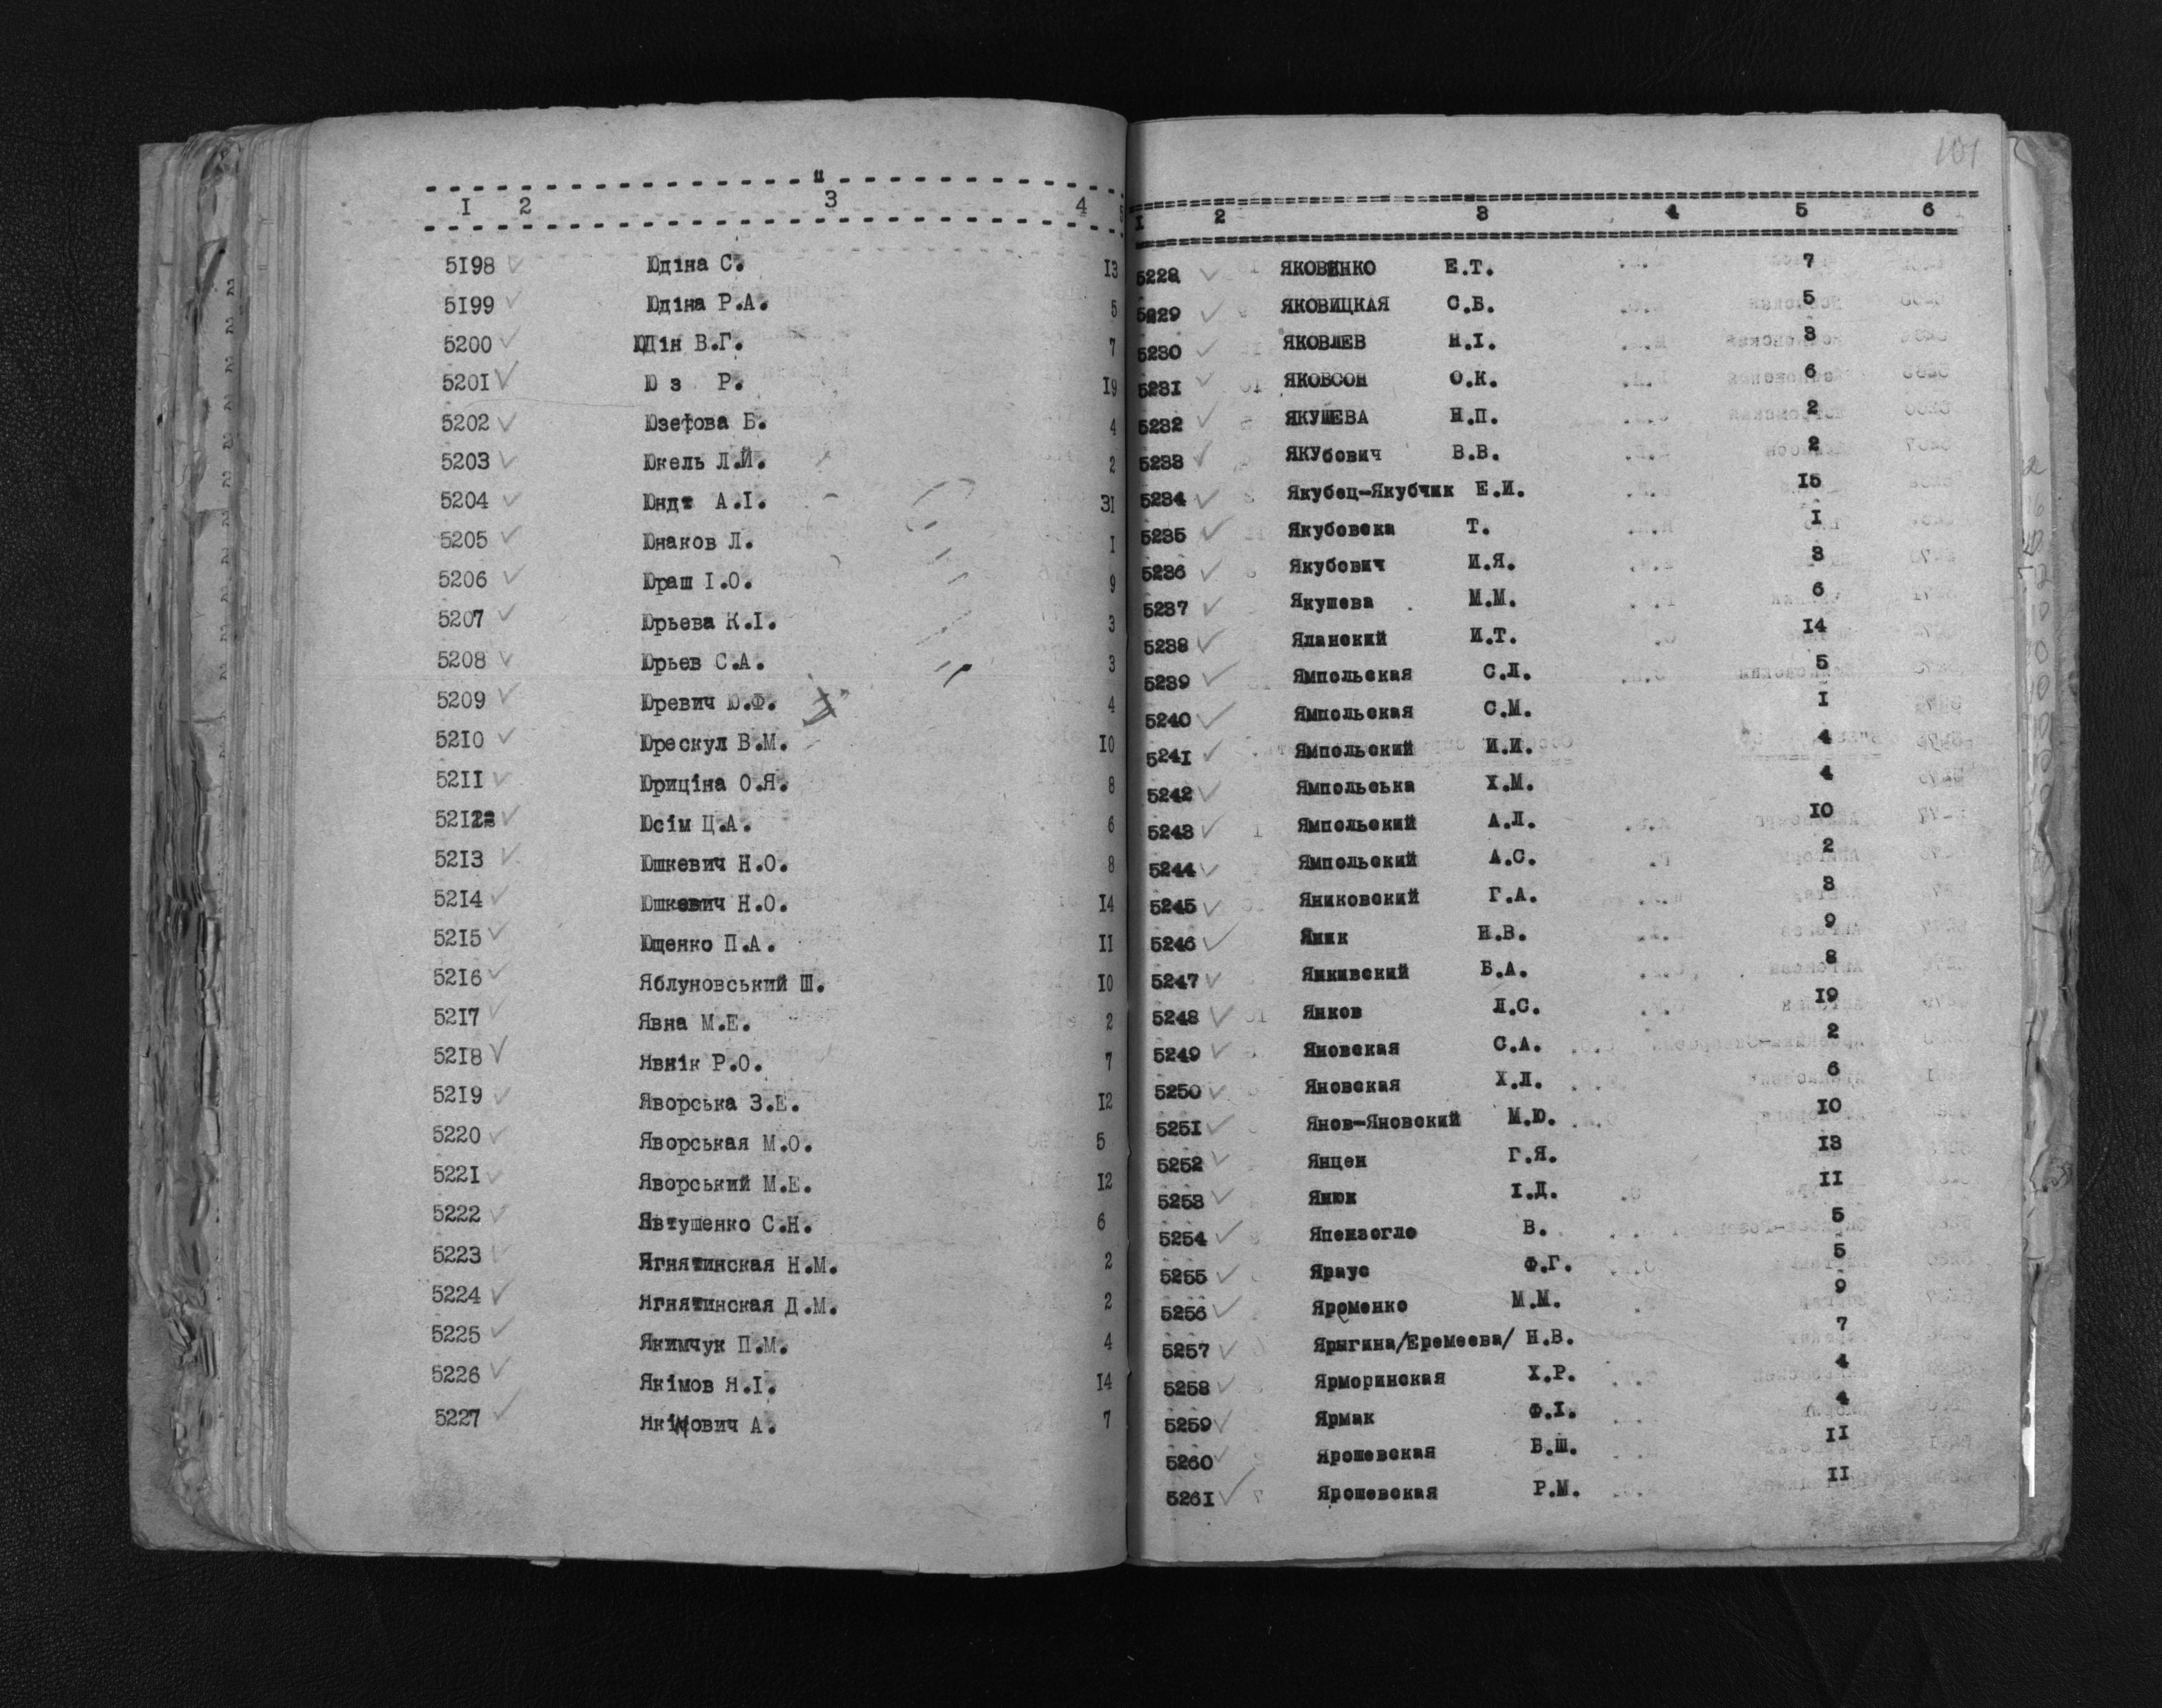 I 2 3 4
5198 Юдіна С. 13
5199 Юдіна Р.А. 5
5200 ЮДін В.Г. 7
5201 Ю з Р. 19
5202 Юзефова Б. 4
5203 Юкель Л.Й. 2
5204 Юндт А.І. 31
5205 Юнаков Л. I
5206 Юраш І.О. 9
5207 Юрьева К.І. 3
5208 Юрьев С.А. 3
5209 Юревич Ю.Ф. 4
5210 Юрескул В.М. 10
5211 Юриціна О.Я. 8
5212 Юсім Ц.А. 6
5213 Юшкевич Н.О. 8
5214 Юшкевич Н.О. 14
5215 Ющенко П.А. 11
5216 Яблуновський Ш. 10
5217 Явна М.Е. 2
5218 Явнік Р.О. 7
5219 Яворська З.Е. 12
5220 Яворськая М.О. 5
5221 Яворський М.Е. 12
5222 Явтушенко С.Н. 6
5223 Ягнятинская Н.М. 2
5224 Ягнятинская Д.М. 2
5225 Якимчук П.М. 4
5226 Якімов Я.І. 14
5227 Якімович А. 7
101
I 2 3 4 5 6
5228 ЯКОВЕНКО Е.Т. 7
5229 ЯКОВИЦКАЯ С.Б. 5
5230 ЯКОВЛЕВ Н.І. 3
5231 ЯКОВСОН О.К. 6
5232 ЯКУШЕВА Н.П. 2
5233 ЯКУбович В.В. 2
5234 Якубец-Якубчик Е.И. 15
5235 Якубовска Т. I
5236 Якубович И.Я. 3
5237 Якушева М.М. 6
5238 Яланский И.Т. 14
5239 Ямпольская С.Л. 5
5240 Ямпольская С.М. I
5241 Ямпольский И.И. 4
5242 Ямпольська Х.М. 4
5243 Ямпольский А.Л. 10
5244 Ямпольский А.С. 2
5245 Яниковский Г.А. 3
5246 Яник Н.В. 9
5247 Янкивский Б.А. 8
5248 Янков Л.С. 19
5249 Яновская С.А. 2
5250 Яновская Х.Л. 6
5251 Янов-Яновский М.Ю. 10
5252 Янцен Г.Я. 13
5253 Янюк І.Д. 11
5254 Япензогло В. 5
5255 Яраус Ф.Г. 5
5256 Яроменко М.М. 9
5257 Ярыгина/Еремеева/ Н.В. 7
5258 Ярморинская Х.Р. 4
5259 Ярмак Ф.І. 4
5260 Ярошевская Б.Ш. 11
5261 Ярошевская Р.М. 11